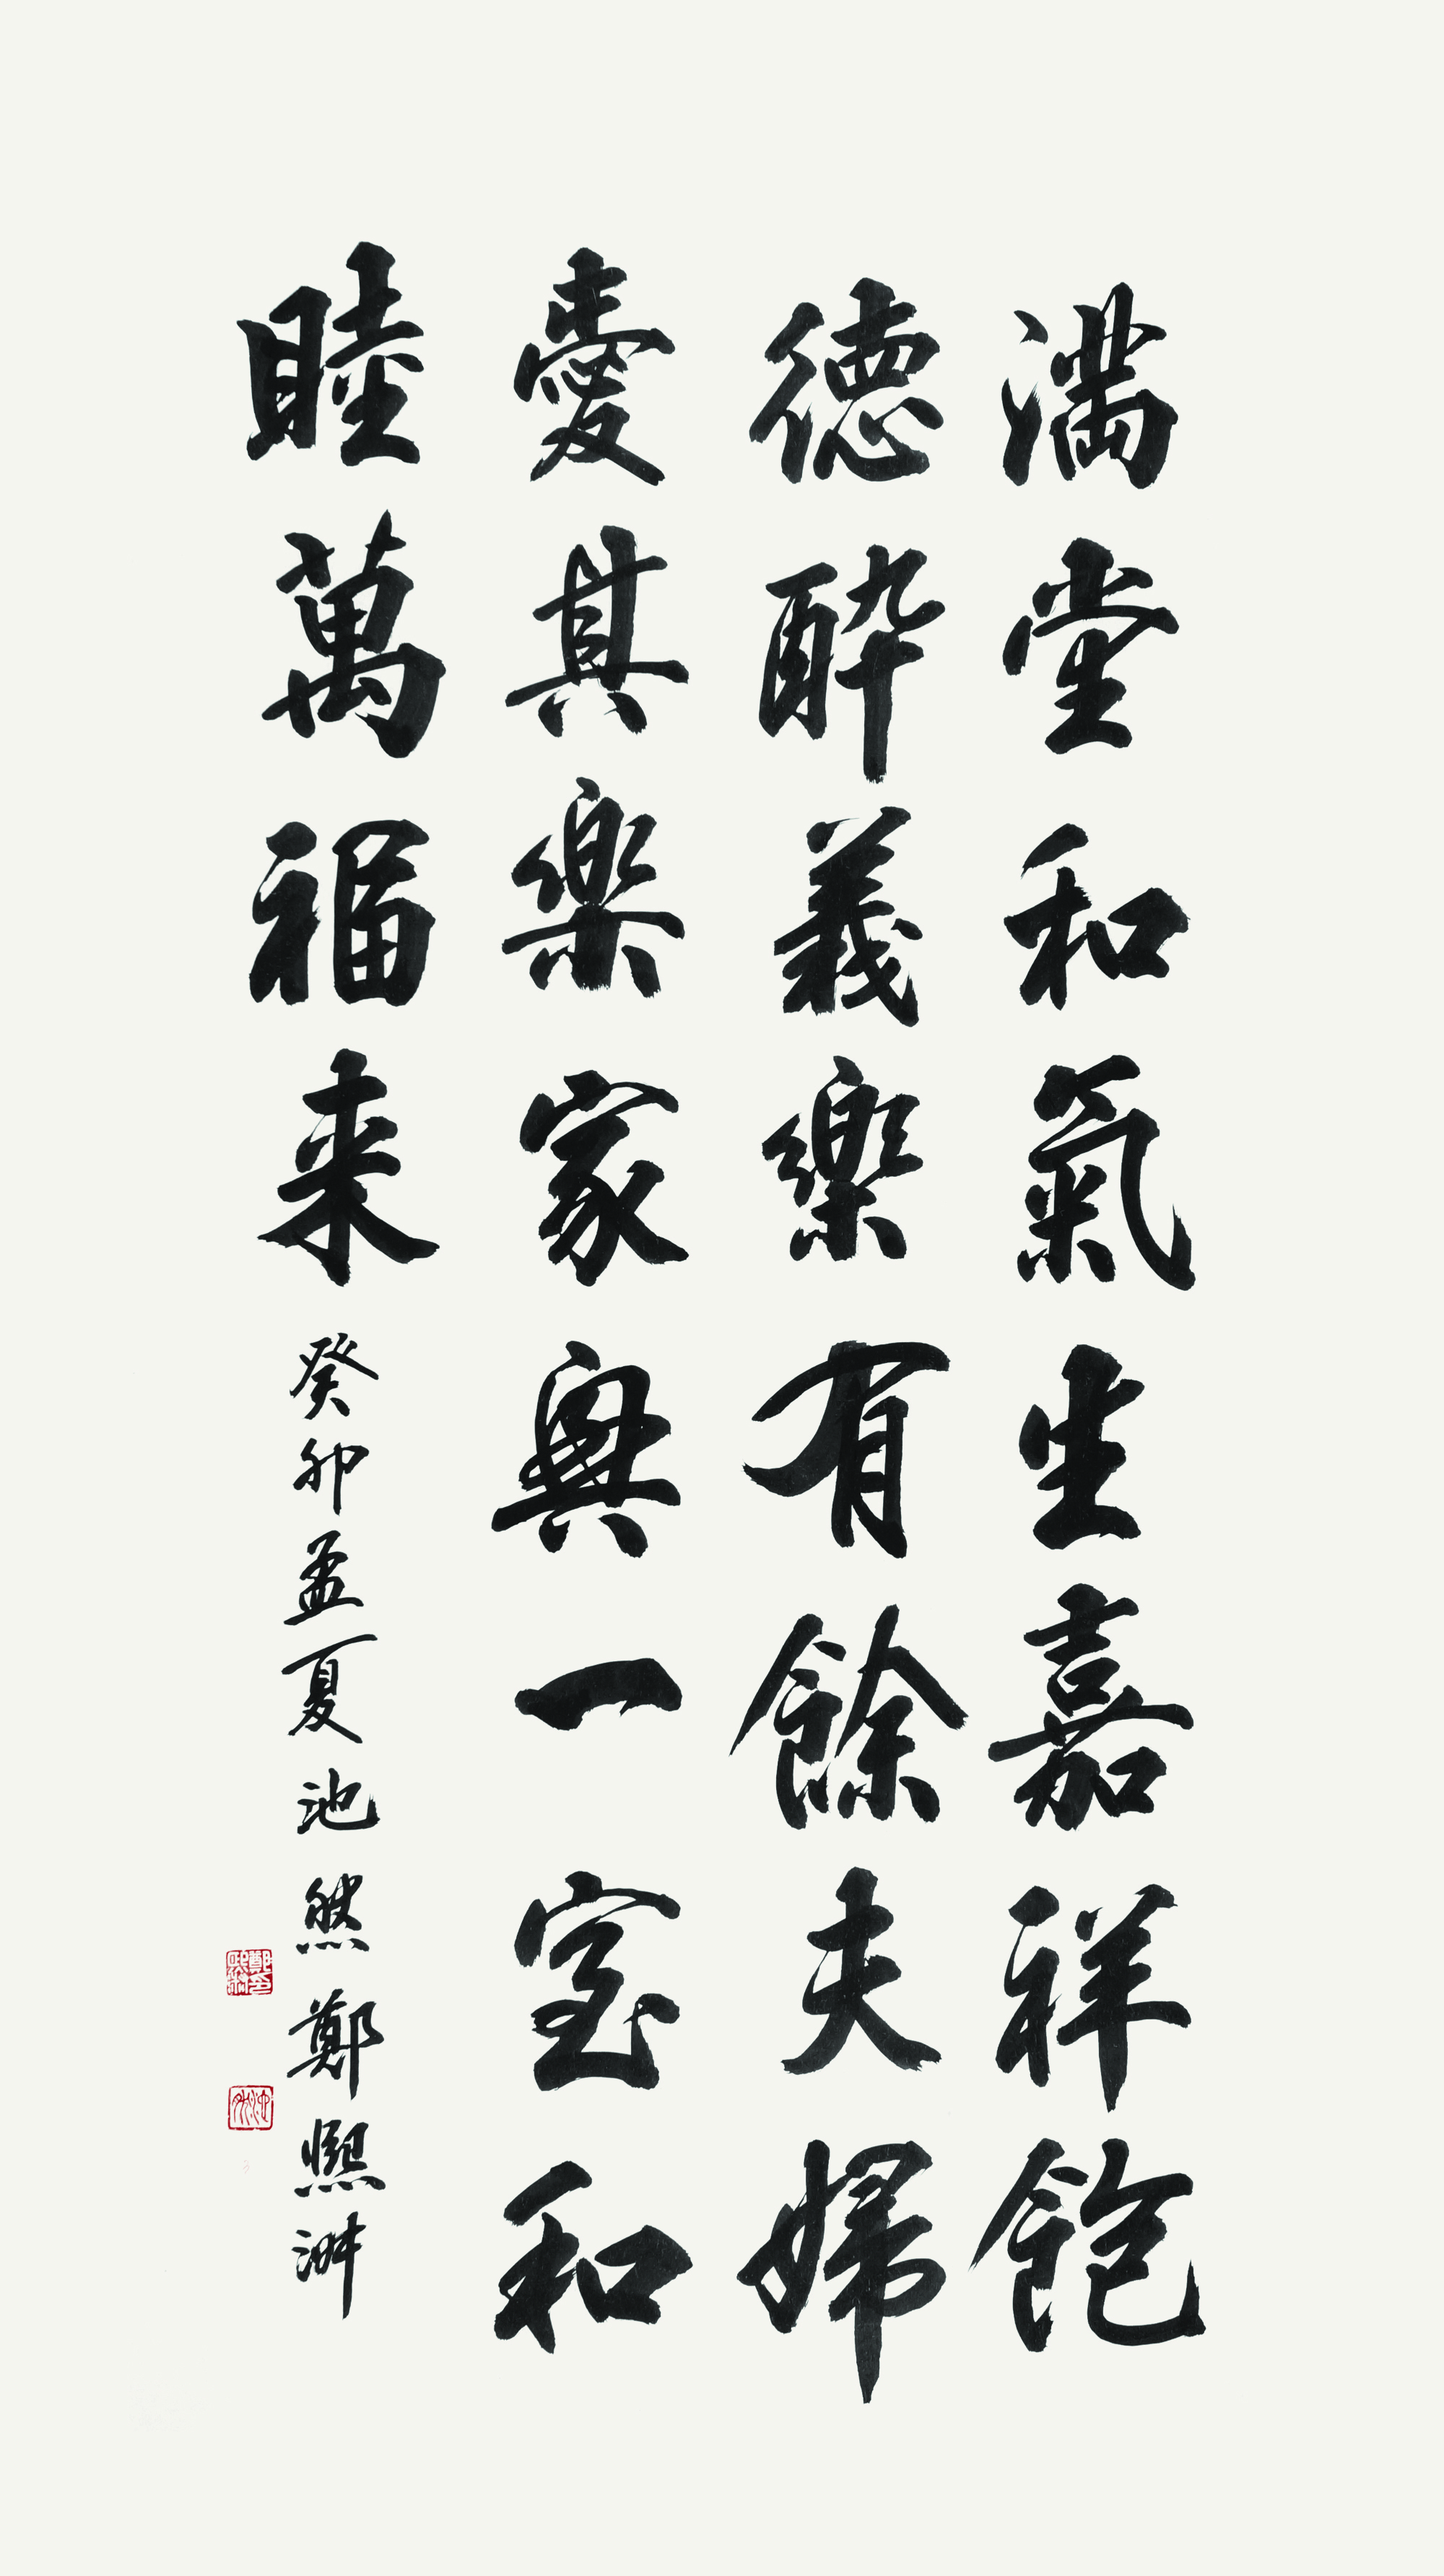 満堂和氣生嘉祥飽
德醉義樂有餘夫婦
愛其樂家興一室和
睦萬福来
癸卯孟夏池然鄭熙淋